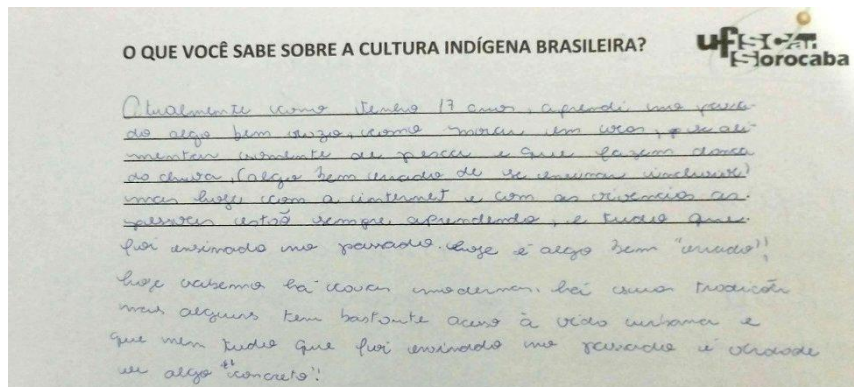 O QUE VOCÊ SABE SOBRE A CULTURA INDÍGENA BRASILEIRA?
ufscar
Sorocaba
Atualmente como tenho 17 anos, aprendi no passa-
do algo bem vazio, como morar em ocas, se ali-
mentar somente de pesca e que fazem dança
da chuva, (algo bem errado de se ensinar inclusive)
mas hoje com a internet e com as vivencias as
pessoas estão sempre aprendendo, e tudo que
foi ensinado no passado. hoje é algo bem "errado"!
hoje sabemos há coisas modernas, há suas tradicões
mais alguns tem bastante acesso à vida urbana e
que nem tudo que foi ensinado no passado é verdade
ou algo "concreto"!